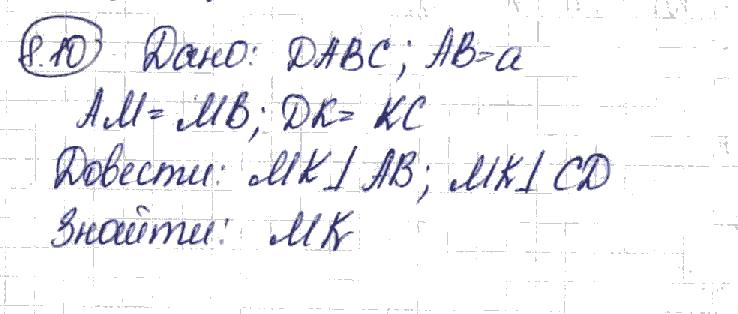 8.10 Дано: DABC; AB=a
AM=MB; DK=KC
Довести: MK⊥AB; MK⊥CD
Знайти: MK